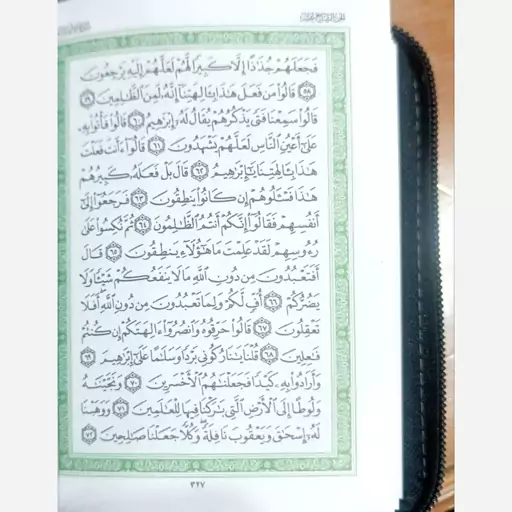 الجزء السابع عشر
فَجَعَلَهُمْ جُذَٰذًا إِلَّا كَبِيرًا لَّهُمْ لَعَلَّهُمْ إِلَيْهِ يَرْجِعُونَ
٥٨ قَالُوا۟ مَن فَعَلَ هَٰذَا بِـَٔالِهَتِنَآ إِنَّهُۥ لَمِنَ ٱلظَّٰلِمِينَ ٥٩
قَالُوا۟ سَمِعْنَا فَتًى يَذْكُرُهُمْ يُقَالُ لَهُۥٓ إِبْرَٰهِيمُ ٦٠ قَالُوا۟ فَأْتُوا۟ بِهِۦ
عَلَىٰٓ أَعْيُنِ ٱلنَّاسِ لَعَلَّهُمْ يَشْهَدُونَ ٦١ قَالُوٓا۟ ءَأَنتَ فَعَلْتَ
هَٰذَا بِـَٔالِهَتِنَا يَٰٓإِبْرَٰهِيمُ ٦٢ قَالَ بَلْ فَعَلَهُۥ كَبِيرُهُمْ
هَٰذَا فَسْـَٔلُوهُمْ إِن كَانُوا۟ يَنطِقُونَ ٦٣ فَرَجَعُوٓا۟ إِلَىٰٓ
أَنفُسِهِمْ فَقَالُوٓا۟ إِنَّكُمْ أَنتُمُ ٱلظَّٰلِمُونَ ٦٤ ثُمَّ نُكِسُوا۟ عَلَىٰ
رُءُوسِهِمْ لَقَدْ عَلِمْتَ مَا هَٰٓؤُلَآءِ يَنطِقُونَ ٦٥ قَالَ
أَفَتَعْبُدُونَ مِن دُونِ ٱللَّهِ مَا لَا يَنفَعُكُمْ شَيْـًٔا وَلَا
يَضُرُّكُمْ ٦٦ أُفٍّ لَّكُمْ وَلِمَا تَعْبُدُونَ مِن دُونِ ٱللَّهِ أَفَلَا
تَعْقِلُونَ ٦٧ قَالُوا۟ حَرِّقُوهُ وَٱنصُرُوٓا۟ ءَالِهَتَكُمْ إِن كُنتُمْ
فَٰعِلِينَ ٦٨ قُلْنَا يَٰنَارُ كُونِى بَرْدًا وَسَلَٰمًا عَلَىٰٓ إِبْرَٰهِيمَ ٦٩
وَأَرَادُوا۟ بِهِۦ كَيْدًا فَجَعَلْنَٰهُمُ ٱلْأَخْسَرِينَ ٧٠ وَنَجَّيْنَٰهُ
وَلُوطًا إِلَى ٱلْأَرْضِ ٱلَّتِى بَٰرَكْنَا فِيهَا لِلْعَٰلَمِينَ ٧١ وَوَهَبْنَا
لَهُۥٓ إِسْحَٰقَ وَيَعْقُوبَ نَافِلَةً وَكُلًّا جَعَلْنَا صَٰلِحِينَ ٧٢
٣٢٧